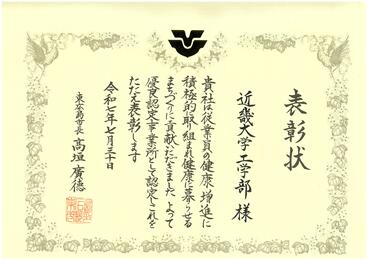 表彰状
近畿大学工学部 様
貴社は従業員の健康増進に
積極的に取り組まれ健康に暮らせる
まちづくりに貢献いただきました よって
優良認定事業所として認定しこれを
たたえ表彰します
令和七年七月三十日
東広島市長 髙垣 廣德